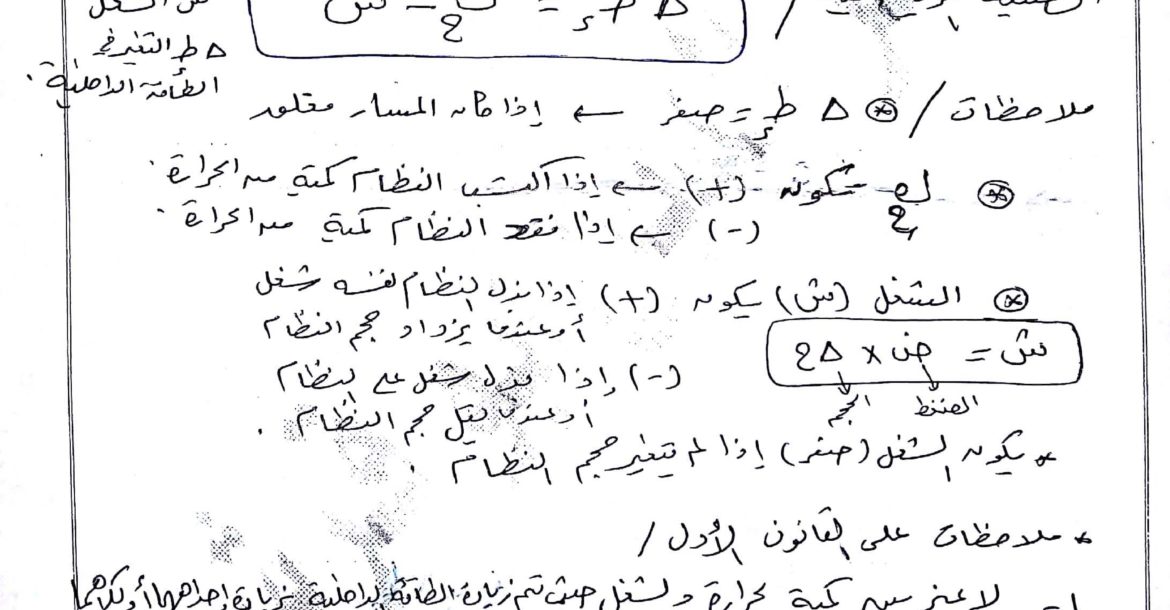 Δ ط د = ك ح - ش
من الشغل
Δ ط التغير في
الطاقة الداخلية .
ملاحظات / ⊛ Δ ط د = صفر ← إذا كان المسار مغلق
⊛ ك ح تكون (+) ← إذا اكتسب النظام كمية من الحرارة .
(-) ← إذا فقد النظام كمية من الحرارة .
⊛ الشغل (ش) يكون (+) إذا بذل النظام نفسه شغل
أو عندما يزداد حجم النظام
ش = ض × Δ ح
الضغط الحجم
(-) إذا بذل شغل على النظام
أو عندما يقل حجم النظام .
* يكون الشغل (صفر) إذا لم يتغير حجم النظام .
* ملاحظات على القانون الأول /
1- لا كمية حرارة و لشغل حيث تتم زيادة الطاقة الداخلية بزيادة إحداهما أو كلاهما